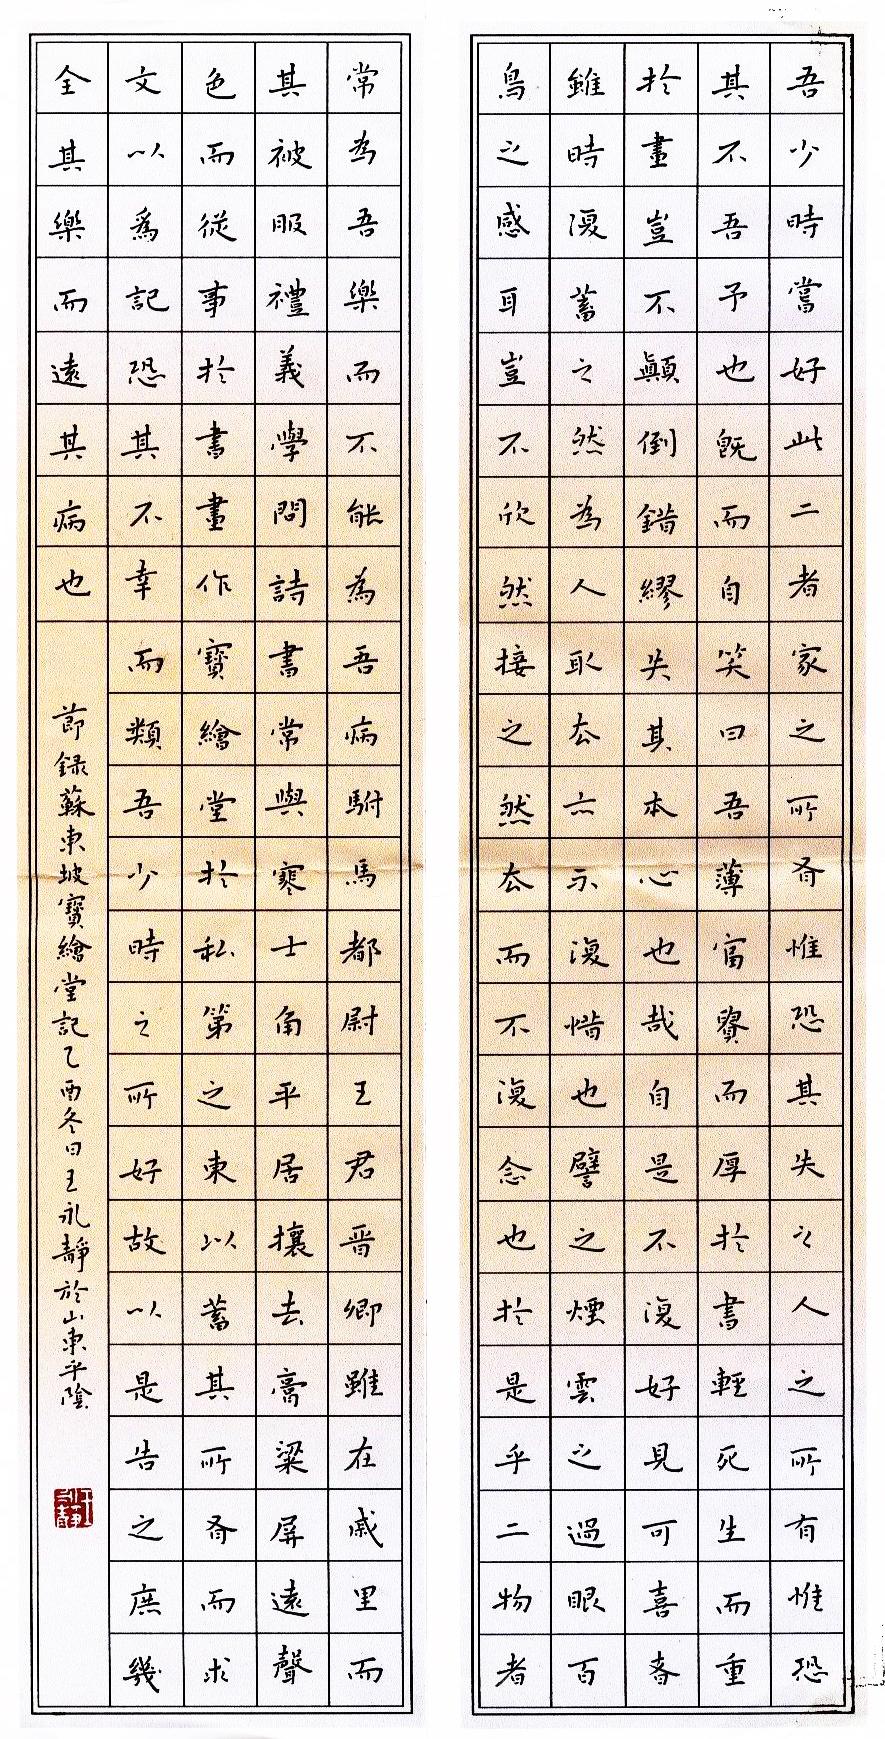 吾少時嘗好此二者家之所有惟恐其失之人之所有惟恐
其不吾予也既而自笑曰吾薄富貴而厚於書輕死生而重
於畫豈不顛倒錯繆失其本心也哉自是不復好見可喜者
雖時復蓄之然為人取去亦不復惜也譬之煙雲之過眼百
鳥之感耳豈不欣然接之然去而不復念也於是乎二物者
常為吾樂而不能為吾病駙馬都尉王君晉卿雖在戚里而
其被服禮義學問詩書常與寒士角平居攘去膏粱屏遠聲
色而從事於書畫作寶繪堂於私第之東以蓄其所有而求
文以爲記恐其不幸而類吾少時之所好故以是告之庶幾
全其樂而遠其病也
節録蘇東坡寶繪堂記乙酉冬日王永靜於山東平陰
王永靜